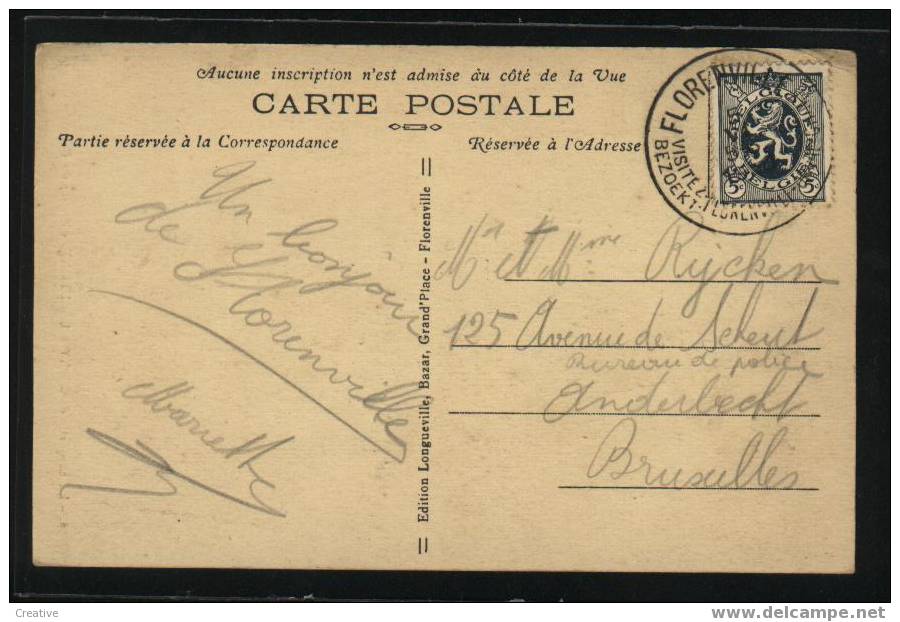 Aucune inscription n'est admise du côté de la Vue
CARTE POSTALE
Partie réservée à la Correspondance
Réservée à l'Adresse
FLORENVILLE
VISITEZ
BEZOEKT-FLORENV
BELGIQUE
BELGIË
5c 5c
Un bonjour
de Florenville
Mariette
Edition Longueville, Bazar, Grand'Place - Florenville
Mr et Mme Rijcken
125 Avenue de Scheut
Bureau de police
Anderlecht
Bruxelles
Creative
www.delcampe.net